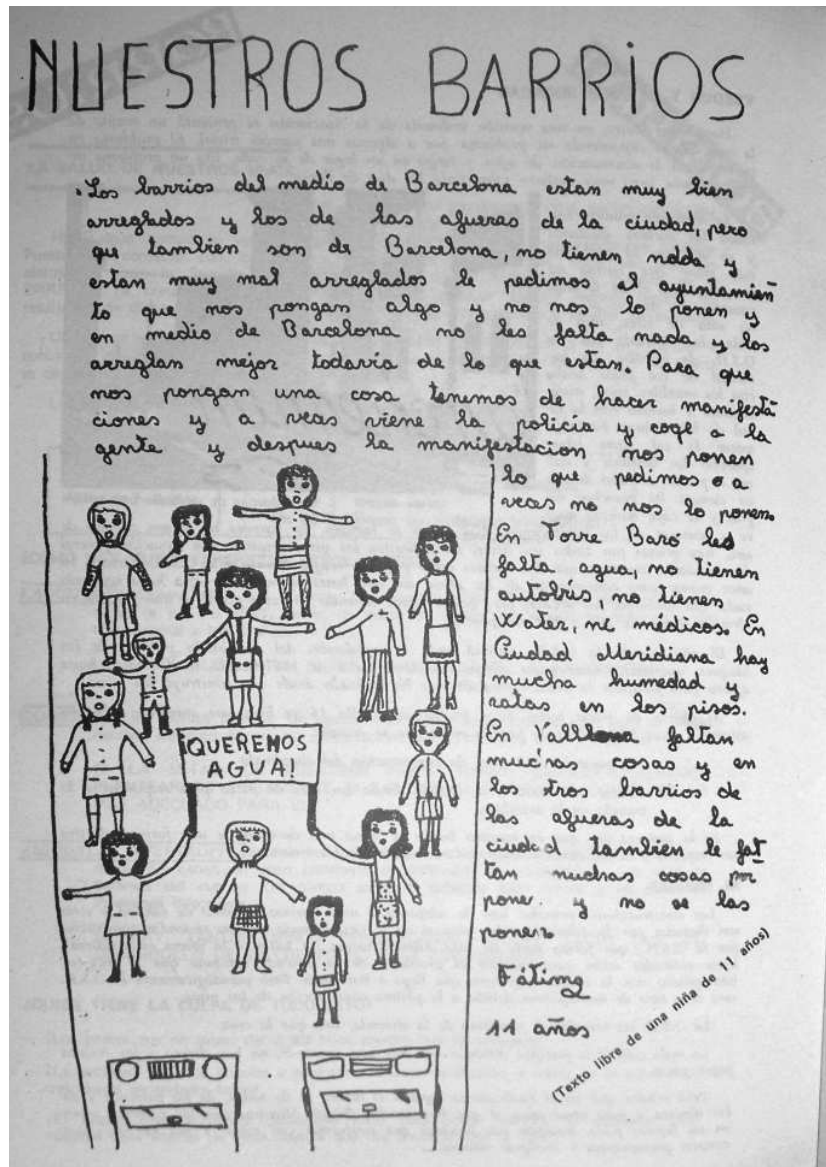 NUESTROS BARRIOS
Los barrios del medio de Barcelona estan muy bien
arreglados y los de las afueras de la ciudad, pero
que tambien son de Barcelona, no tienen nadda y
estan muy mal arreglados le pedimos al ayuntamien
to que nos pongan algo y no nos lo ponen y
en medio de Barcelona no les falta nada y los
arreglan mejor todavía de lo que estan. Para que
nos pongan una cosa tenemos de hacer manifesta
ciones y a veces viene la policía y coge a la
gente y despues la manifestacion nos ponen
lo que pedimos o a
veces no nos lo ponen.
En Torre Baró les
falta agua, no tienen
autobús, no tienen
Water, ni médicos. En
Ciudad Meridiana hay
mucha humedad y
ratas en los pisos.
En Vallbona faltan
muchas cosas y en
los tros barrios de
las afueras de la
ciudad tambien le fal
tan muchas cosas por
poner y no se las
ponen
QUEREMOS
AGUA!
Fátima
11 años
(Texto libre de una niña de 11 años)